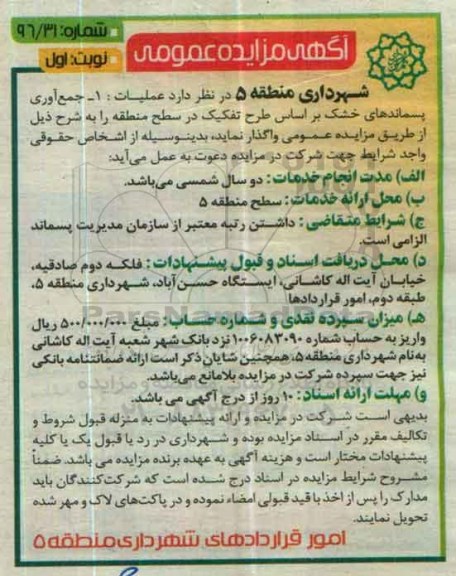 شماره: ۹۶/۳۱
نوبت: اول
آگهی مزایده عمومی
شهرداری منطقه ۵ در نظر دارد عملیات : ۱ـ جمع‌آوری
پسماندهای خشک بر اساس طرح تفکیک در سطح منطقه را به شرح ذیل
از طریق مزایده عمومی واگذار نماید، بدینوسیله از اشخاص حقوقی
واجد شرایط جهت شرکت در مزایده دعوت به عمل می‌آید:
الف) مدت انجام خدمات: دو سال شمسی می‌باشد.
ب) محل ارائه خدمات: سطح منطقه ۵
ج) شرایط متقاضی: داشتن رتبه معتبر از سازمان مدیریت پسماند
الزامی است.
د) محل دریافت اسناد و قبول پیشنهادات: فلکه دوم صادقیه،
خیابان آیت اله کاشانی، ایستگاه حسن‌آباد، شهرداری منطقه ۵،
طبقه دوم، امور قراردادها
هـ) میزان سپرده نقدی و شماره حساب: مبلغ ۵۰۰/۰۰۰/۰۰۰ ریال
واریز به حساب شماره ۱۰۰۶۰۸۳۰۹۰ نزد بانک شهر شعبه آیت اله کاشانی
به‌نام شهرداری منطقه ۵، همچنین شایان ذکر است ارائه ضمانتنامه بانکی
نیز جهت سپرده شرکت در مزایده بلامانع می‌باشد.
و) مهلت ارائه اسناد: ۱۰ روز از درج آگهی می باشد.
بدیهی است شرکت در مزایده و ارائه پیشنهادات به منزله قبول شروط و
تکالیف مقرر در اسناد مزایده بوده و شهرداری در رد یا قبول یک یا کلیه
پیشنهادات مختار است و هزینه آگهی به عهده برنده مزایده می باشد. ضمناً
مشروح شرایط مزایده در اسناد درج شده است که شرکت‌کنندگان باید
مدارک را پس از اخذ با قید قبولی امضاء نموده و در پاکت‌های لاک و مهر شده
تحویل نمایند.
امور قراردادهای شهرداری منطقه ۵